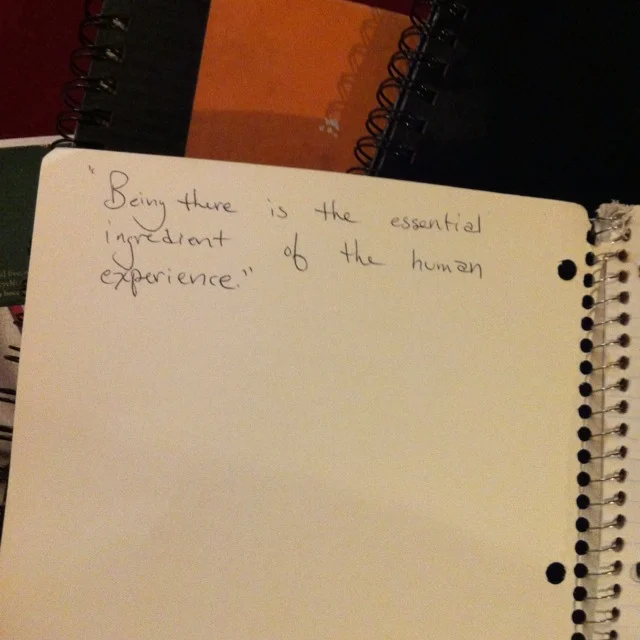 "Being there is the essential
ingredient of the human
experience."